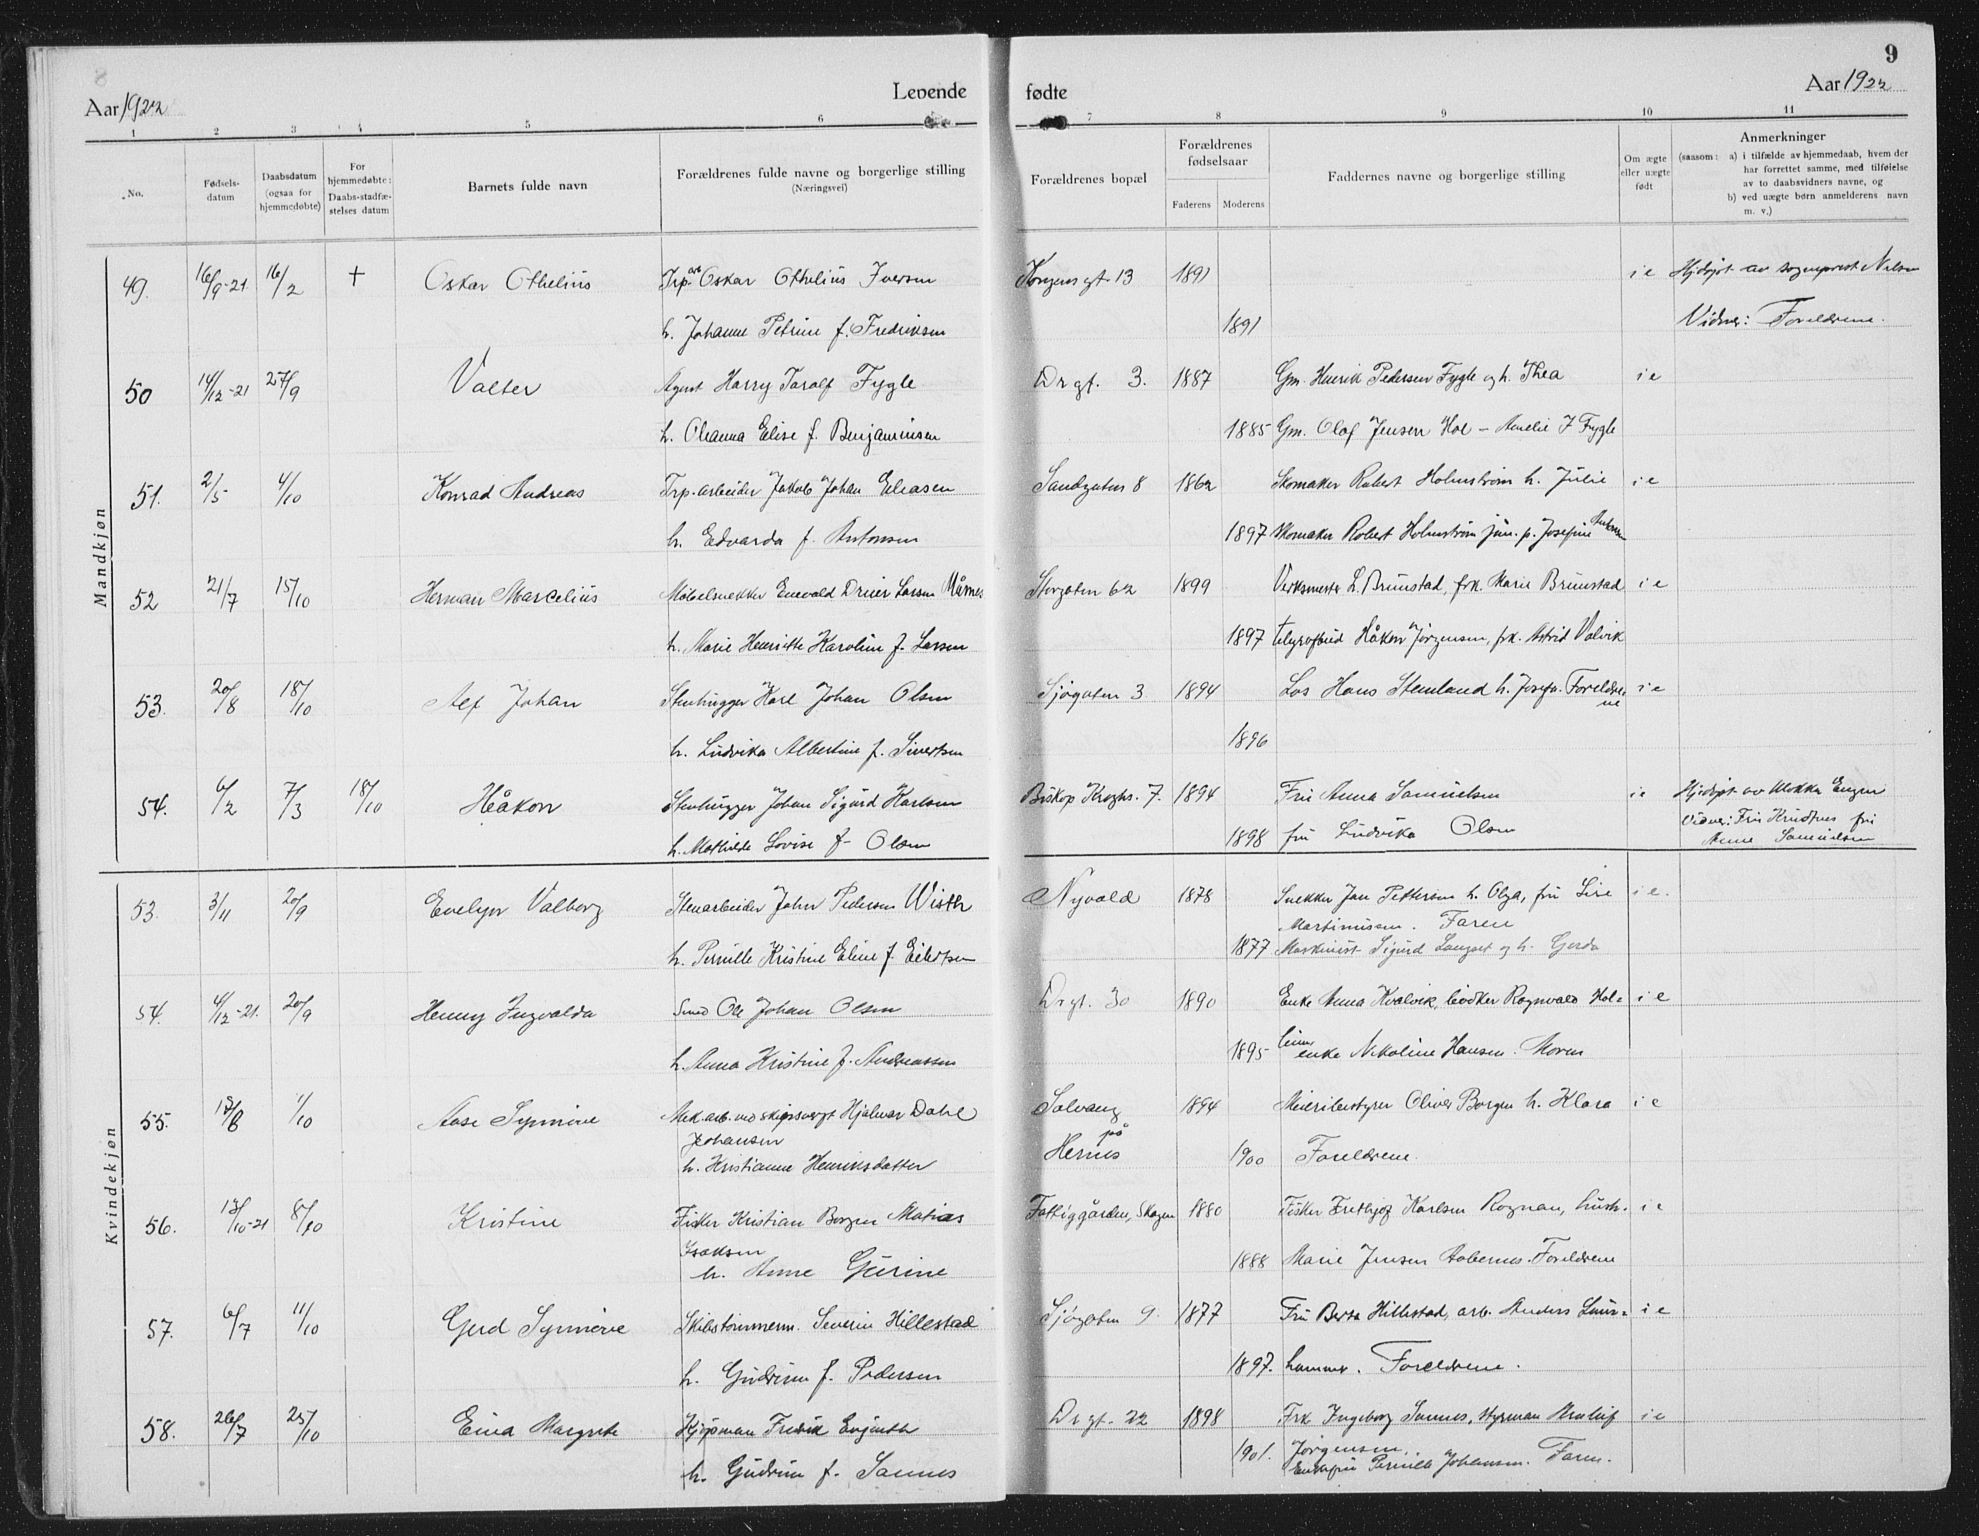 8
Aar 1922
Levende
1 2 3 4 5 6
No.
Fødsels-
datum
Daabsdatum
(ogsaa for
hjemmedøbte)
For
hjemmedøbte:
Daabs-stadfæ-
stelses datum
Barnets fulde navn
Forældrenes fulde navne og borgerlige stilling
(Næringsvei)
Mandkjøn
49. 16/9-21 16/2 + Oskar Othelius Trp. arb Oskar Othelius Iversen
h. Johanne Petrine f. Fredriksen
50 14/12-21 27/9 Valter Agent Harry Toralf Fygle
h. Oleanna Elise f. Benjaminsen
51. 2/5 4/10 Konrad Andreas Trp. arbeider Jakob Johan Eliasen
h. Edvarda f. Antonsen
52 21/7 15/10 Herman Marcelius Møbelsnekker Enevald Drier Larsen Mårnes
h. Marie Henriette Karoline f. Larsen
53. 20/8 18/10 Alf Johan Stenhugger Karl Johan Olsen
h. Ludvika Albertine f. Sivertsen
54. 6/2 7/3 18/10 Håkon Stenhugger Johan Sigurd Karlsen
h. Mathilde Lovise f. Olsen
Kvindekjøn
53. 3/11 20/9 Evelyn Valborg Stenarbeider John Pedersen Wisth
h. Pernille Kristine Eline f. Eilertsen
54. 4/12-21. 20/9 Henny Ingvalda Smed Ole Johan Olsen
h. Anna Kristine f. Andreassen
55. 1/10 Aase Synnøve Mek. arb. ved skipsverft Hjalmar Dahl
Johansen
h. Kristianne Henriksdatter
56. 13/10-21 8/10 Kristine Fisker Kristian Borgen Matias
Isaksen
h. Anne Gurine
57. 6/7 11/10 Gerd Synnøve Skibstømmerm. Severin Hillestad
h. Gudrun f. Pedersen
58. 26/7 25/10 Eina Margrete Kjøpman Fredrik Enjenth
h. Gudrun f. Sannes
9
fødte
Aar 1922
7 8 9 10 11
Forældrenes bopæl
Forældrenes
fødselsaar
Faderens Moderens
Faddernes navne og borgerlige stilling
Om ægte
eller uægte
født
Anmerkninger
(saasom: a) i tilfælde av hjemmedaab, hvem der
har forrettet samme, med tilføielse
av to daabsvidners navne, og
b) ved uægte børn anmelderens navn
m. v.)
Kongens gt. 13 1891 i e Hjdøpt av sogneprest Nilsen
1891 Vidner: Foreldrene.
Dr gt. 3. 1887 Gm. Henrik Pedersen Fygle og h. Thea i e
1885 Gm. Olaf Jensen Hol - Amelie J Fygle
Sandgaten 8 1862 Skomaker Robert Holmstrøm h. Julie i e
1897 Skomaker Robert Holmstrøm jun. p. Josefine Antonsen
Storgaten 62 1899 Verksmester L. Brunstad, frk. Marie Brunstad i e
1897 telegrafbud Håkon Jørgensen, frk. Astrid Valvik
Sjøgaten 3 1894 Los Hans Stemland h. Josefa. Foreldre- i e
ne
1896
Biskop Kroghs. 7. 1894 Fru Anna Samuelsen i e Hjdøpt av klokker Engen
1898 fru Ludvika Olsen Vidner: Fru Knudtnes fru
Anna Samuelsen
Nyvold 1878 Snekker Jan Pettersen h. Olga, fru Lise i e.
Martinussen. Faren
1877 Maskinist Sigurd Langset og h. Gerda
Dr gt. 30 1890 Enke Anna Kvalvik, bødker Ragnvald Hol- i e
1895 enke Nikoline Hansen. Moren
Solvang 1894 Meieribestyrer Oliver Borgen h. Klara i e
på
Hernes 1900 Foreldrene.
Fattiggården, Skagen 1880 Fisker Fridtjof Karlsen Rognan, hush. i e
1888 Marie Jensen Aabernes. Foreldrene
Sjøgaten 9. 1877 Fru Berta Hillestad, arb. Anders Laur- i e
1897. hammer. Foreldrene.
Dr gt. 22 1898 Frk Ingeborg Sannes, styrman i e
1901. Jørgensen.
Enkefru Pernille Johansen. Faren.